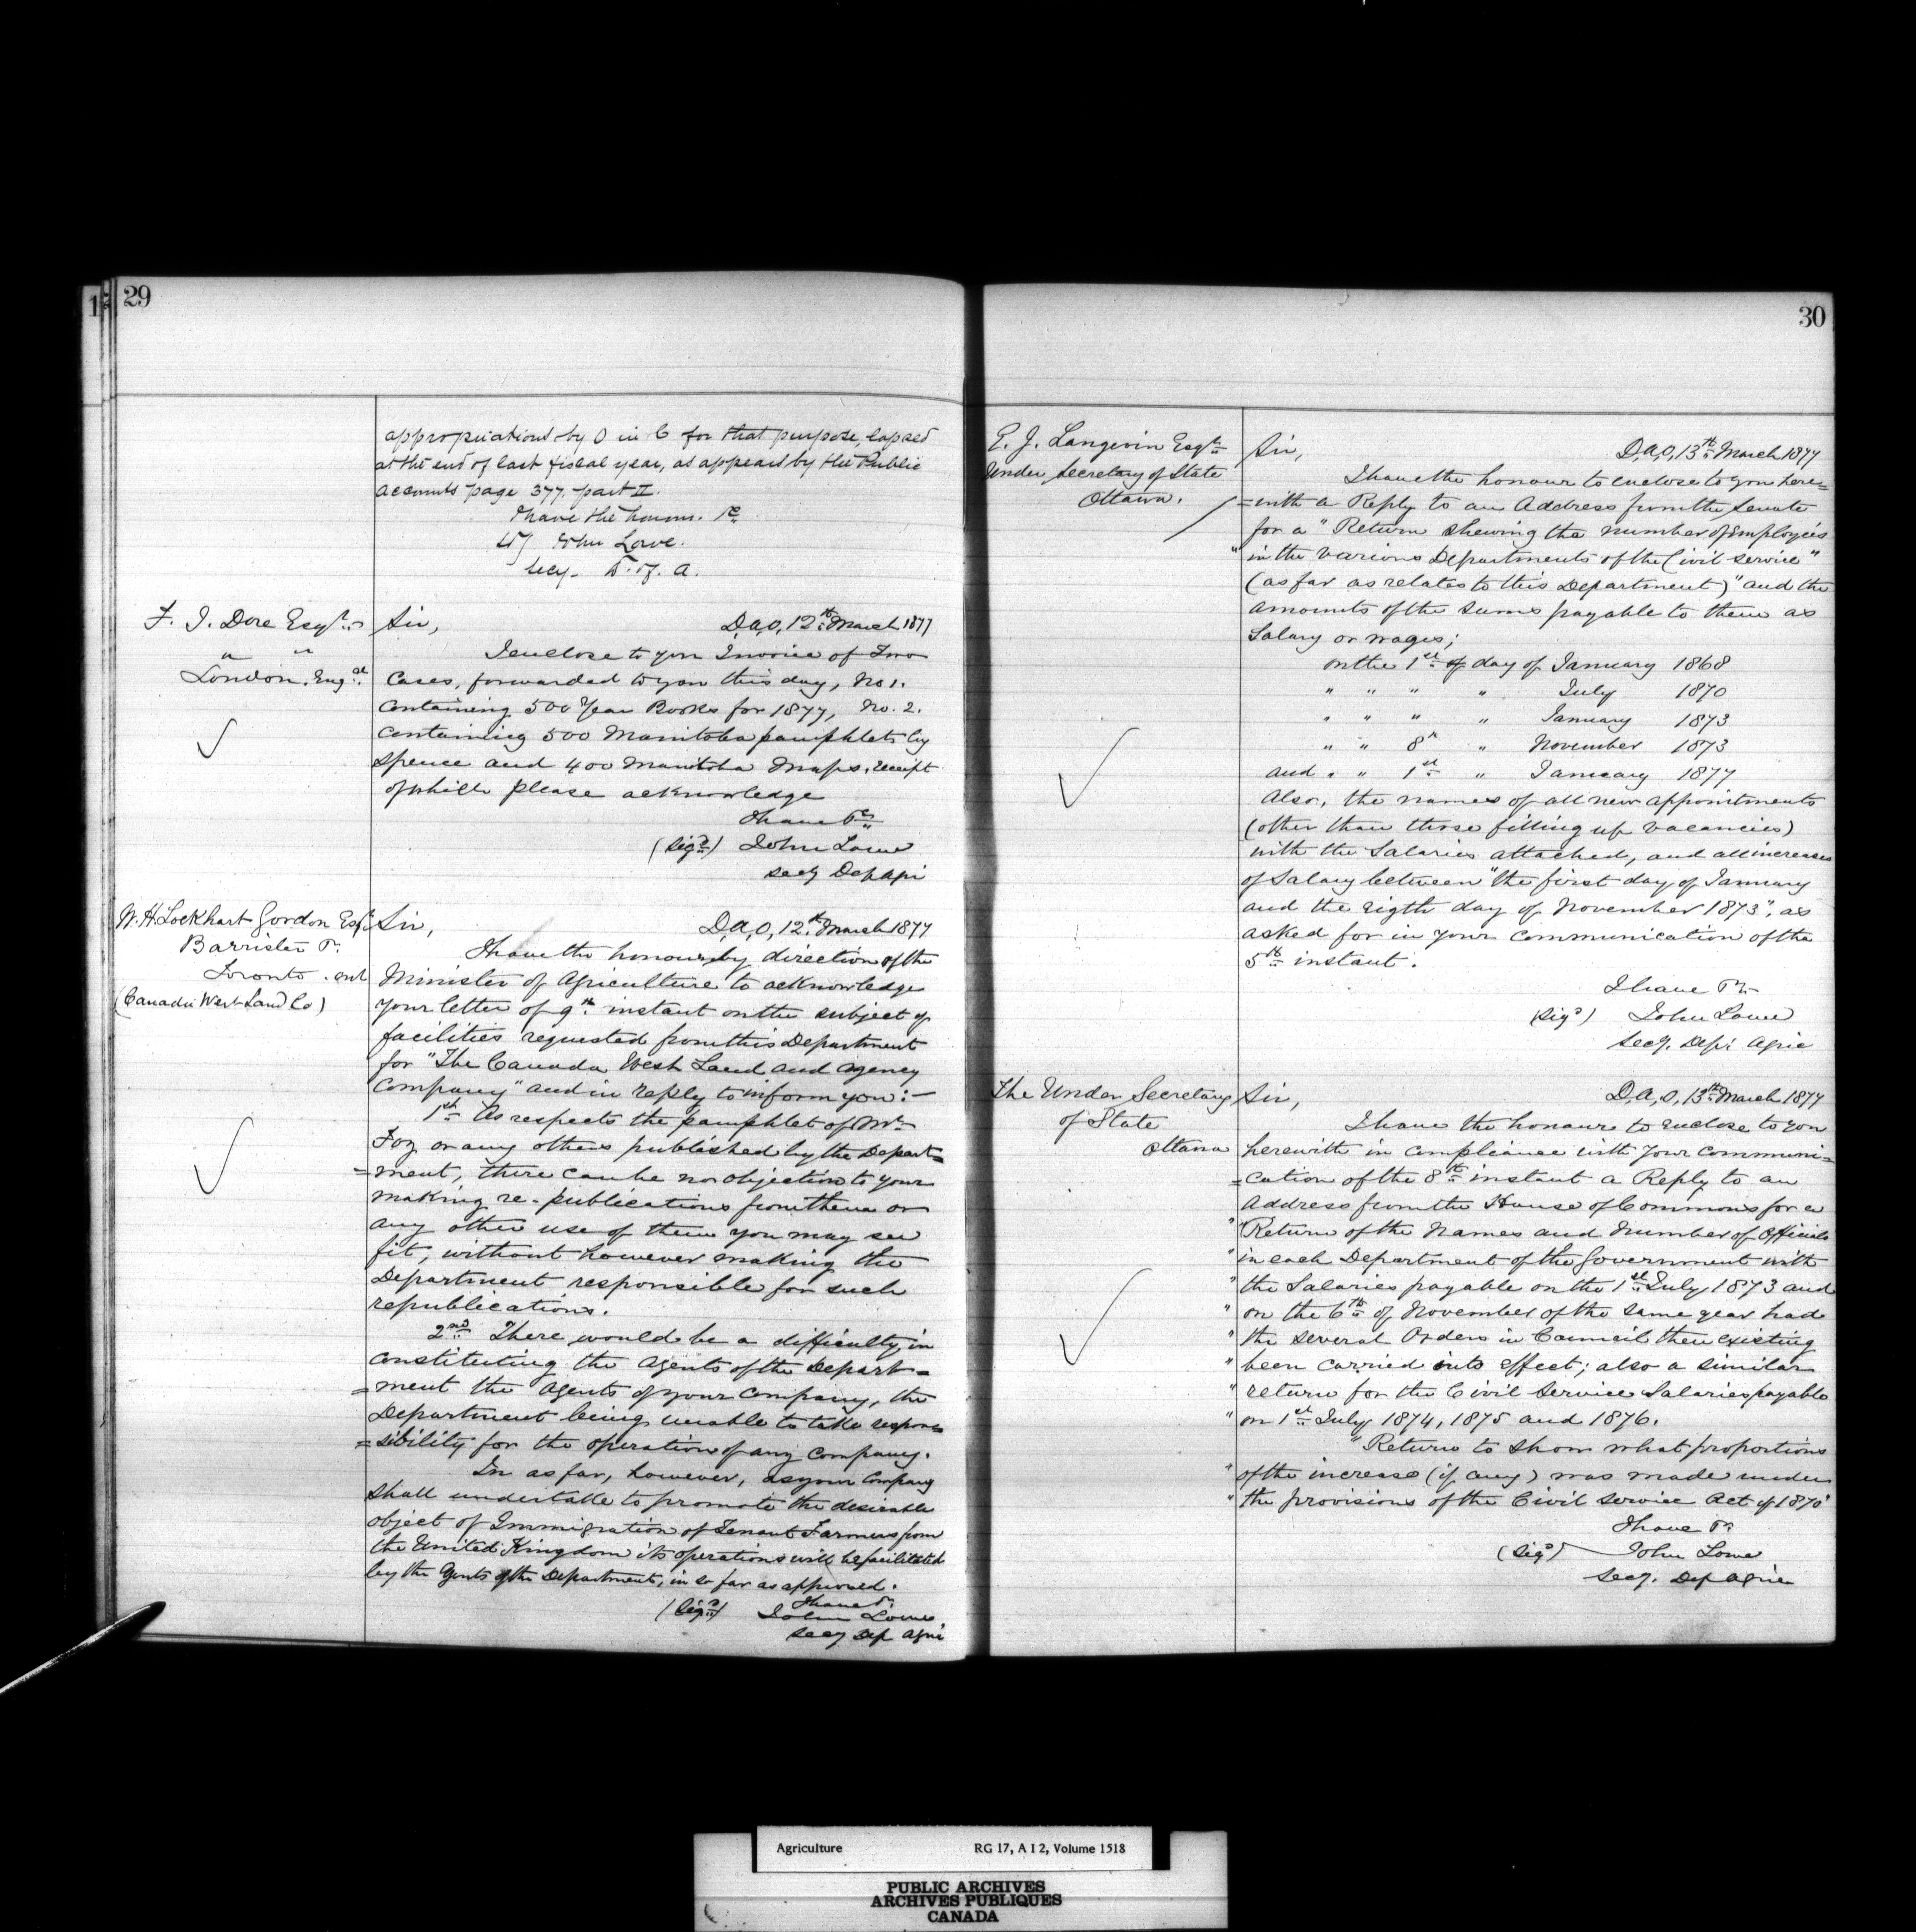 29
appropriations by O in C for that purpose, lapsed
at the end of last fiscal year, as appears by the Public
Accounts page 377. part II.
I have the honour. &c
John Lowe.
Secy. D. of. A.
F. J. Dore Esqr.
" "
London. Engd.
Sir,
D,A,O, 12th March 1877
I enclose to you Invoice of Two
Cases, forwarded to you this day, No 1.
Containing 500 Year Books for 1877, No. 2.
Containing 500 Manitoba pamphlets by
Spence and 400 Manitoba Maps, receipt
of which please acknowledge
I have &c
(Sigd) John Lowe
Secy Dep Agri
W. H. Lockhart Gordon Esqr
Barrister &c.
Toronto. Ont
(Canada West Land Co)
Sir,
D,A,O, 12th March 1877
I have the honour, by direction of the
Minister of Agriculture to acknowledge
your letter of 9th instant on the subject of
facilities requested from this Department
for "The Canada West Land and Agency
Company" and in reply to inform you:—
1st As respects the pamphlet of Mr
Foy or any others published by the Depart=
=ment, there can be no objection to your
making re-publications from them or
any other use of them you may see
fit, without however making the
Department responsible for such
republications.
2nd There would be a difficulty in
constituting the Agents of the Depart=
=ment the Agents of your Company, the
Department being unable to take respon=
=sibility for the operation of any Company.
In as far, however, as your Company
shall undertake to promote the desirable
object of Immigration of Tenant Farmers from
the United Kingdom its operations will be facilitated
by the Agents of the Department, in so far as approved.
I have &c
(Sigd) John Lowe
Secy Dep Agri
30
E. J. Langevin Esqr
Under Secretary of State
Ottawa.
Sir,
D,A,O, 13th March 1877
I have the honour to enclose to you here=
=with a Reply to an Address from the Senate
for a "Return shewing the number of Employeés
"in the various Departments of the Civil Service"
(as far as relates to this Department) "and the
amounts of the sums payable to them as
Salary or wages;
on the 1st of day of January 1868
" " " " July 1870
" " " " January 1873
" " 8th " November 1873
and " " 1st " January 1877
Also, the names of all new appointments
(other than those filling up vacancies)
with the Salaries attached, and all increases
of Salary between "the first day of January
and the eigth day of November 1873", as
asked for in your communication of the
5th instant.
I have &c
(Sigd) John Lowe
Secy. Dept Agric
The Under Secretary
of State
Ottawa
Sir,
D,A,O, 13th March 1877
I have the honour to enclose to you
herewith in compliance with your communi=
=cation of the 8th instant a Reply to an
Address from the House of Commons for a
"Return of the Names and Number of Officials
"in each Department of the Government with
"the Salaries payable on the 1st July, 1873 and
"on the 6th of November of the same year had
"the several Orders in Council then existing
"been carried into effect; also a similar
"return for the Civil Service Salaries payable
"on 1st July, 1874, 1875 and 1876.
"Return to show what proportions
"of the increase (if any) was made under
"the provisions of the Civil Service Act of 1870"
I have &c
(Sigd) John Lowe
Secy. Dep Agric
Agriculture RG 17, A I 2, Volume 1518
PUBLIC ARCHIVES
ARCHIVES PUBLIQUES
CANADA